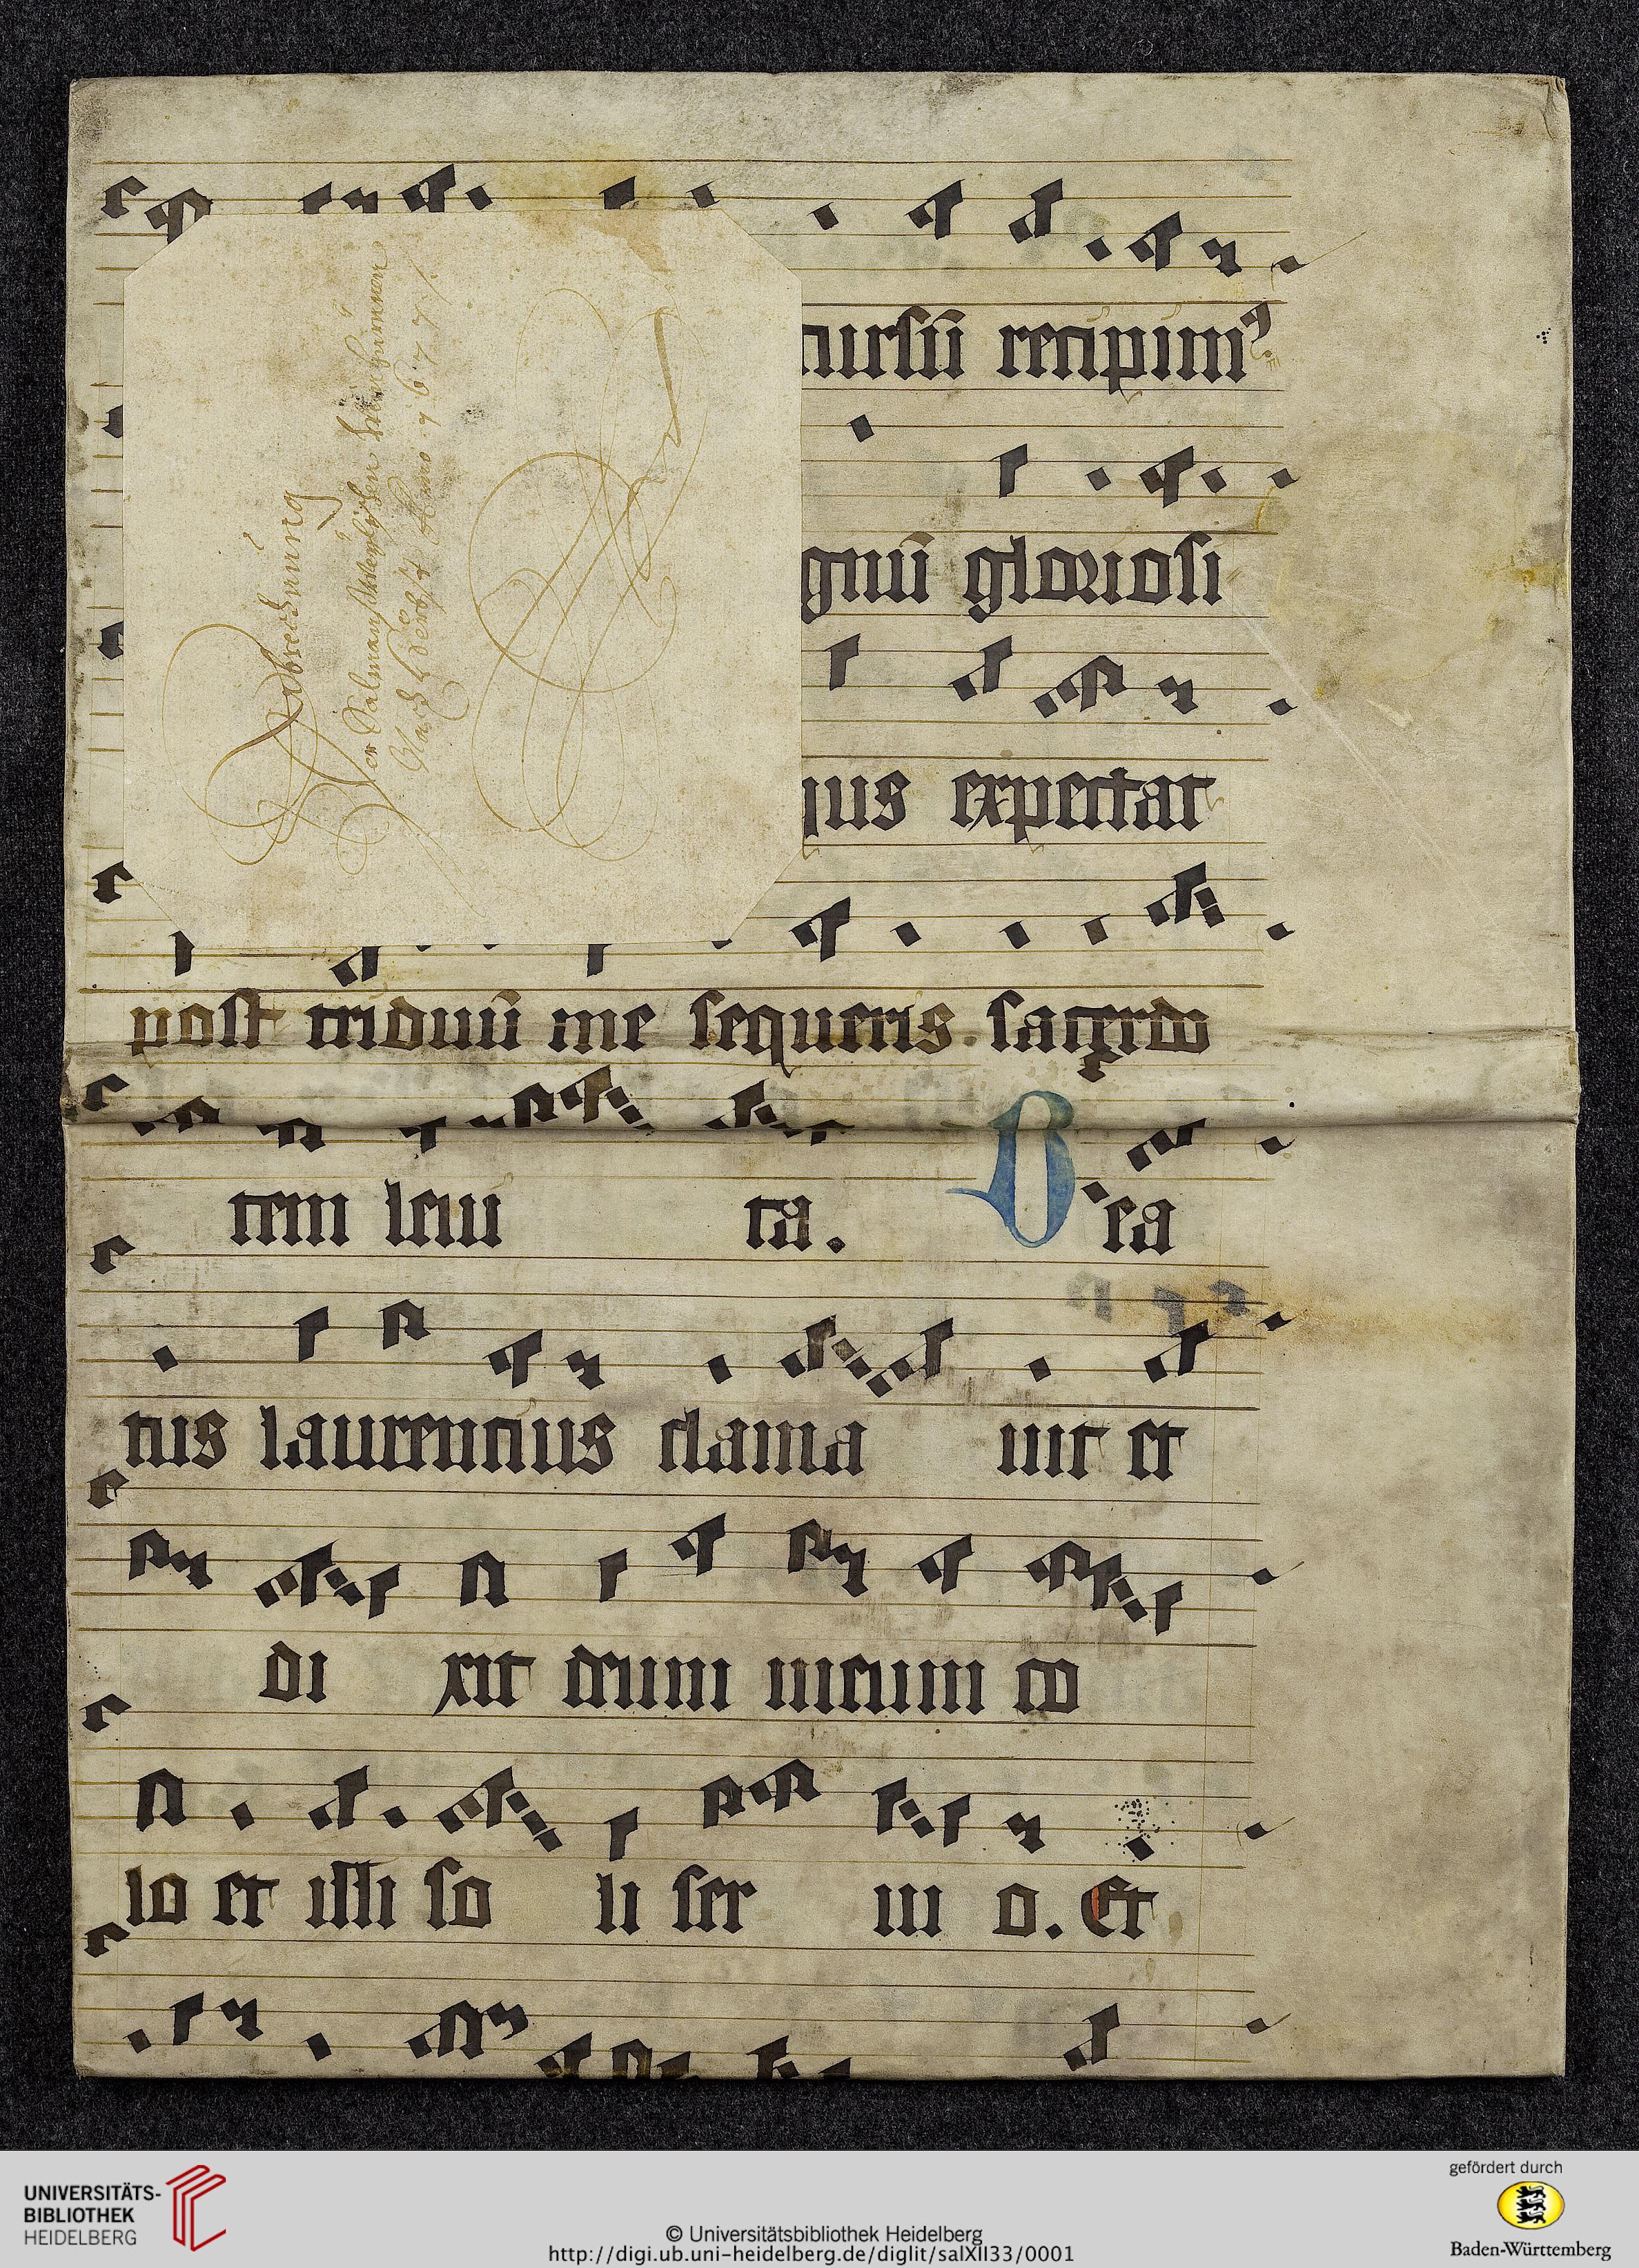 cursū recipimꝰ
gnū gloriosi
ius expectat
post triduū me sequeris. sacerdo
tem leui ta. Bea
tus laurentius clama uit et
di xit deum meum co
lo et illi so li ser ui o. Et
Abrechnung
der Salmanßweylischen
Anno 1677
UNIVERSITÄTS-
BIBLIOTHEK
HEIDELBERG
© Universitätsbibliothek Heidelberg
http://digi.ub.uni-heidelberg.de/diglit/salXII33/0001
gefördert durch
Baden-Württemberg